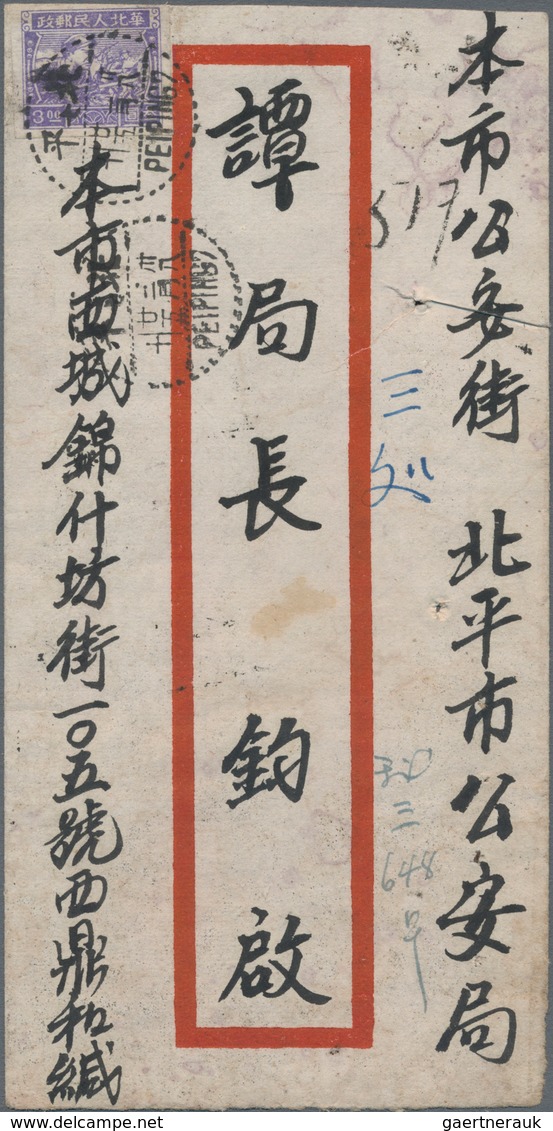 本市公安街 北平市公安局
517
三处
三
648
譚局長鈞啟
本市西城錦什坊街一〇五號西鼎和緘
華北人民郵政
PEIPING7
PEIPING7
gaertnerauk